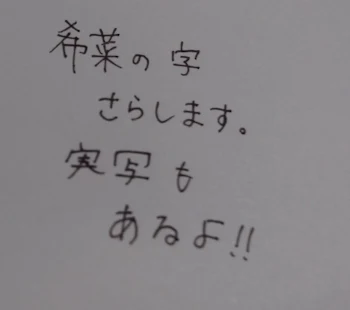 希菜の字
さらします。
実写も
あるよ!!